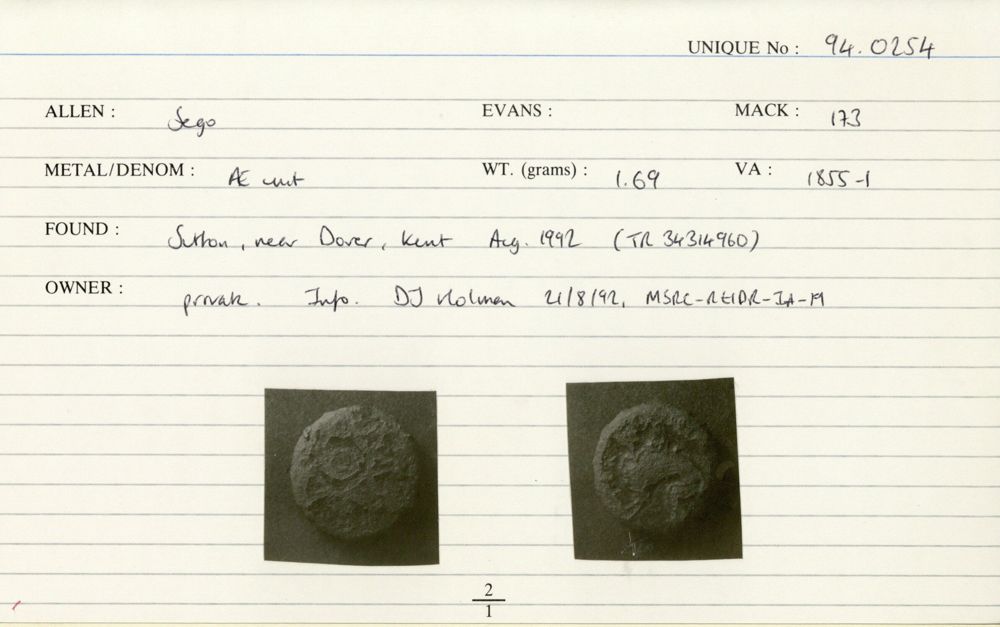 UNIQUE No : 94.0254
ALLEN : Sego EVANS : MACK : 173
METAL/DENOM : Æ unit WT. (grams) : 1.69 VA : 1855-1
FOUND : Sutton, near Dover, Kent Aug. 1992 (TR 34314960)
OWNER : private. Info. DJ Holman 21/8/92,
2
1